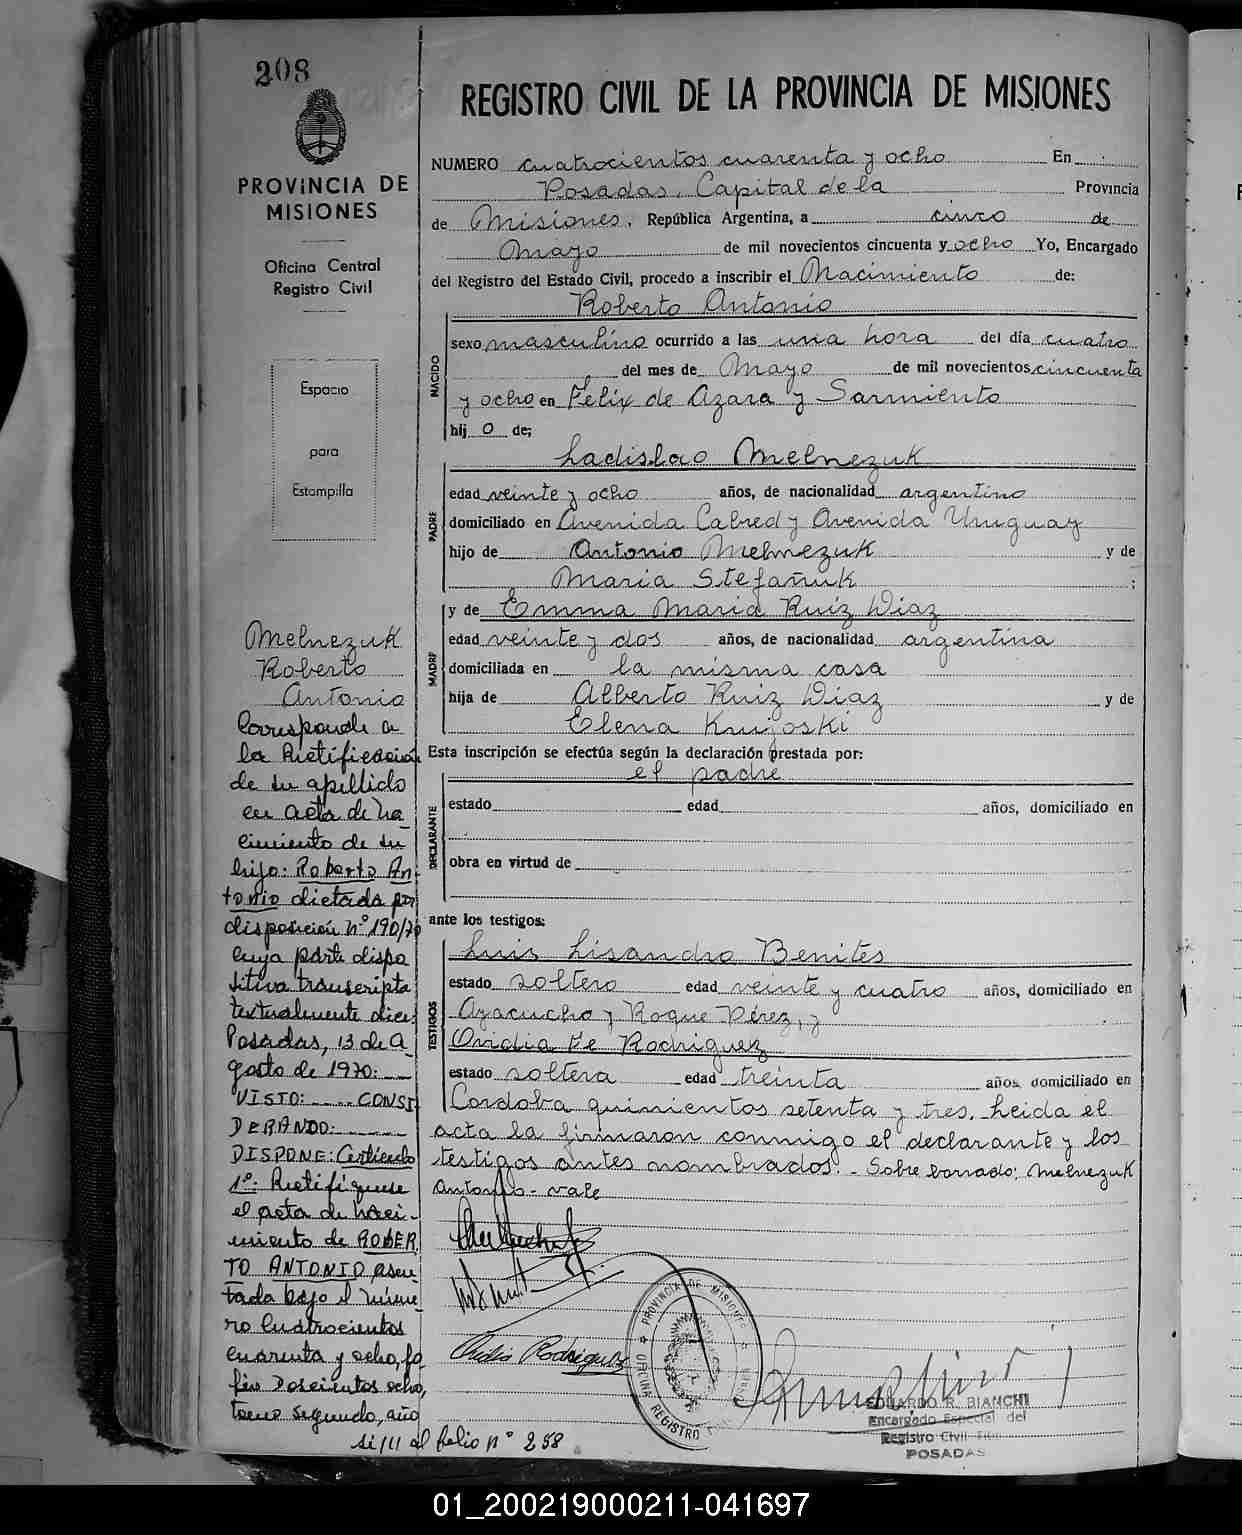 208
PROVINCIA DE
MISIONES
Oficina Central
Registro Civil
Espacio
para
Estampilla
Melnezuk
Roberto
Antonio
Corresponde a
la Rectificación
de su apellido
en acta de na-
cimiento de su
hijo: Roberto An-
tonio dictada por
disposición Nº 190/70
cuya parte dispo
sitiva transcripta
textualmente dice:
Posadas, 13 de A-
gosto de 1970:
VISTO: ..... CONSI
DERANDO: ........
DISPONE: Artículo
1º: Rectifíquese
el acta de naci-
miento de ROBER
TO ANTONIO, asen-
tada bajo el núme-
ro Cuatrocientos
cuarenta y ocho, fo
lio Doscientos ocho,
tomo segundo, año
al folio nº 258
REGISTRO CIVIL DE LA PROVINCIA DE MISIONES
NUMERO cuatrocientos cuarenta y ocho En
Posadas, Capital de la Provincia
de Misiones, República Argentina, a cinco de
Mayo de mil novecientos cincuenta y ocho Yo, Encargado
del Registro del Estado Civil, procedo a inscribir el Nacimiento de:
Roberto Antonio
NACIDO
sexo masculino ocurrido a las una hora del día cuatro
del mes de Mayo de mil novecientos cincuenta
y ocho en Felix de Azara y Sarmiento
hij o de;
Ladislao Melnezuk
PADRE
edad veinte y ocho años, de nacionalidad argentino
domiciliado en Avenida Cabred y Avenida Uruguay
hijo de Antonio Melnezuk y de
Maria Stefañuk ;
y de Emma Maria Ruiz Diaz
MADRE
edad veinte y dos años, de nacionalidad argentina
domiciliada en la misma casa
hija de Alberto Ruiz Diaz y de
Elena Knijoski
Esta inscripción se efectúa según la declaración prestada por:
el padre
DECLARANTE
estado edad años, domiciliado en
obra en virtud de
ante los testigos:
Luis Lisandro Benites
TESTIGOS
estado soltero edad veinte y cuatro años, domiciliado en
Ayacucho y Roque Pérez, y
Ovidia Fe Rodriguez
estado soltera edad treinta años, domiciliado en
Cordoba quinientos setenta y tres. Leida el
acta la firmaron conmigo el declarante y los
testigos antes nombrados. - Sobre borrado: Melnezuk
Antonio - vale
Ovidia Rodriguez
PROVINCIA DE MISIONES
OFICINA REGISTRO
EDUARDO R. BIANCHI
Encargado Especial del
Registro Civil
POSADAS
01_200219000211-041697